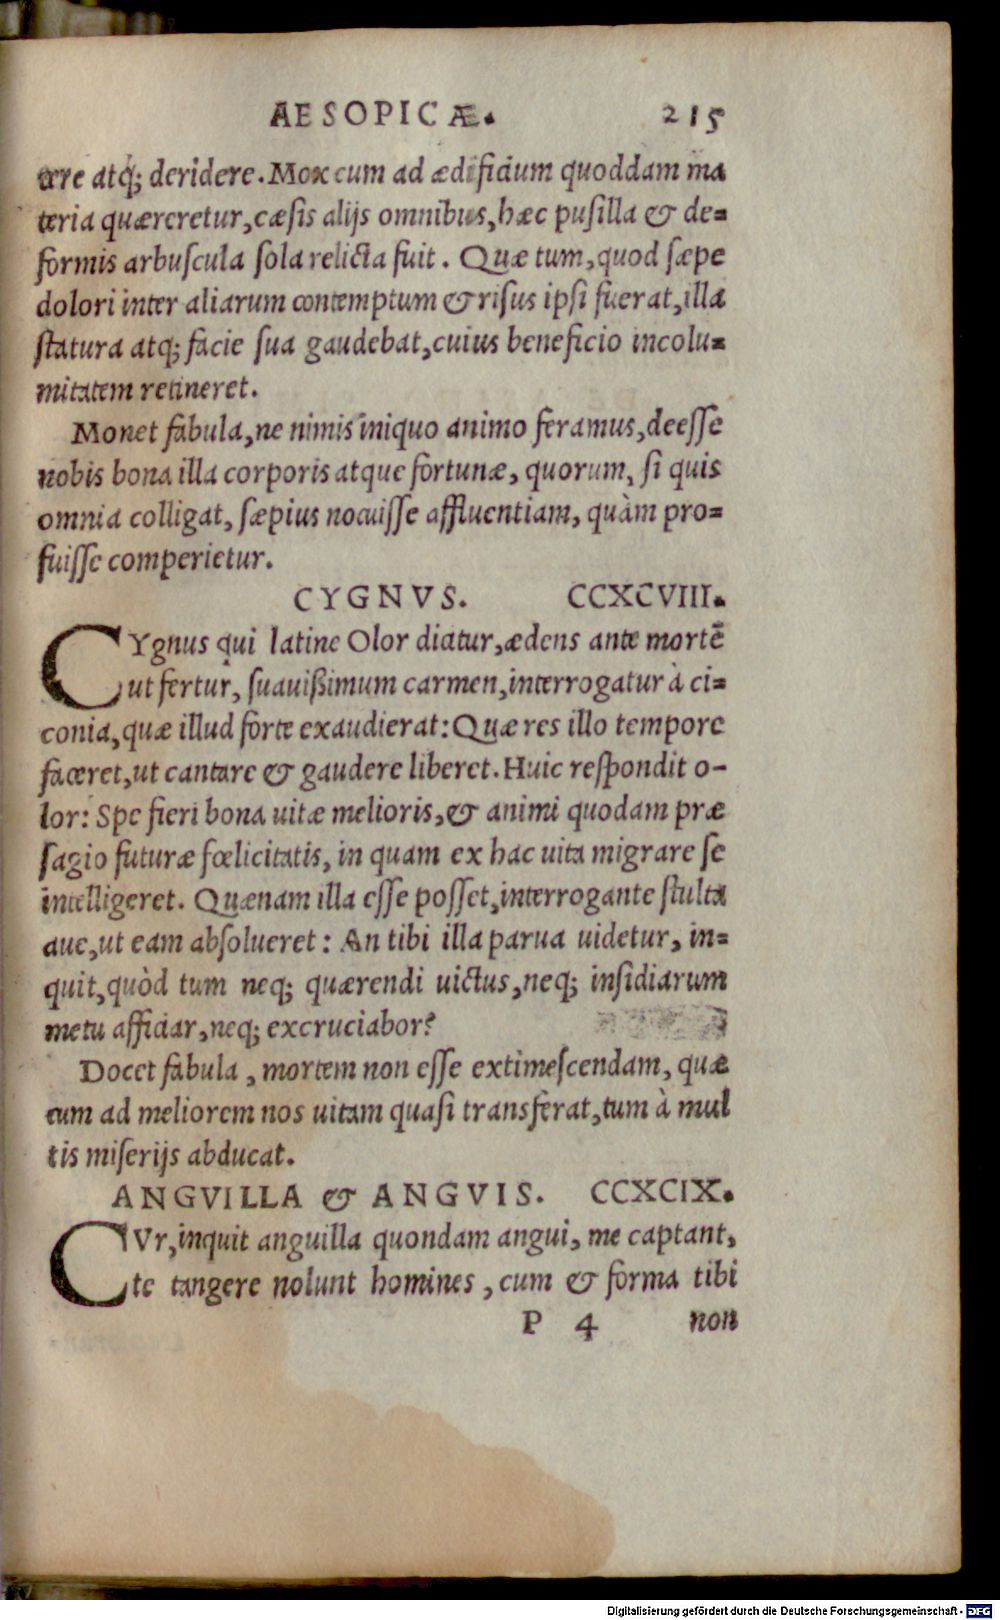 AESOPICÆ. 215
cere atq; deridere. Mox cum ad ædificium quoddam ma
teria quæreretur, cæsis alijs omnibus, hæc pusilla & de=
formis arbuscula sola relicta fuit. Quæ tum, quod sæpe
dolori inter aliarum contemptum & risus ipsi fuerat, illa
statura atq; facie sua gaudebat, cuius beneficio incolu=
mitatem retineret.
Monet fabula, ne nimis iniquo animo feramus, deesse
nobis bona illa corporis atque fortunæ, quorum, si quis
omnia colligat, sæpius nocuisse affluentiam, quàm pro=
fuisse comperietur.
CYGNVS. CCXCVIII.
CYgnus qui latine Olor dicitur, ædens ante mortē
ut fertur, suauißimum carmen, interrogatur à ci=
conia, quæ illud forte exaudierat: Quæ res illo tempore
faceret, ut cantare & gaudere liberet. Huic respondit o-
lor: Spe fieri bona uitæ melioris, & animi quodam præ
sagio futuræ fœlicitatis, in quam ex hac uita migrare se
intelligeret. Quænam illa esse posset, interrogante stulta
aue, ut eam absolueret: An tibi illa parua uidetur, in=
quit, quòd tum neq; quærendi uictus, neq; insidiarum
metu afficiar, neq; excruciabor?
Docet fabula, mortem non esse extimescendam, quæ
cum ad meliorem nos uitam quasi transferat, tum à mul
tis miserijs abducat.
ANGVILLA & ANGVIS. CCXCIX.
CVr, inquit anguilla quondam angui, me captant,
te tangere nolunt homines, cum & forma tibi
P 4 non
Digitalisierung gefördert durch die Deutsche Forschungsgemeinschaft - DFG